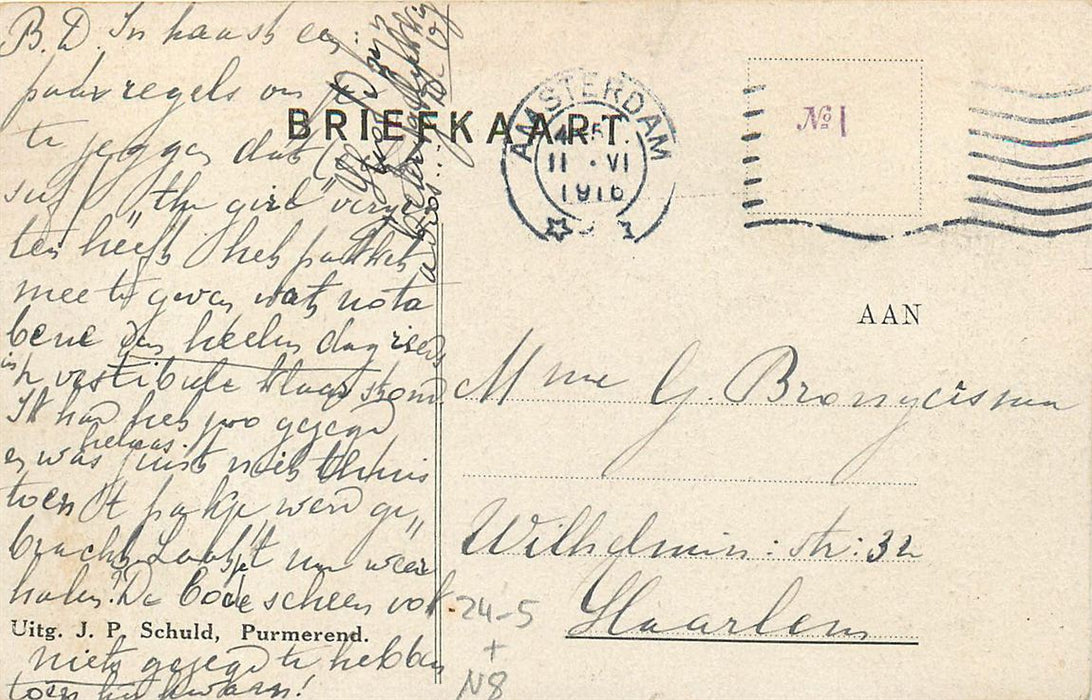 B. D. In haast een
paar regels om je
te zeggen dat
suf "the girl" verge
ten heeft het pakket
mee te geven wat nota
bene den heelen dag reeds
in vestibule klaar stond
Ik had het zoo gezegd
helaas
en was juist niet thuis
toen 't pakje werd ge„
bracht. Laat je 't nu weer
halen? De bode scheen ook
niets gezegd te hebben
toen hij kwam!
BRIEFKAART.
AMSTERDAM
11 · VI
1916
№ 1
AAN
Mme G.
Wilhelmin: str: 32
Haarlem
24-5
+
N8
Uitg. J. P. Schuld, Purmerend.